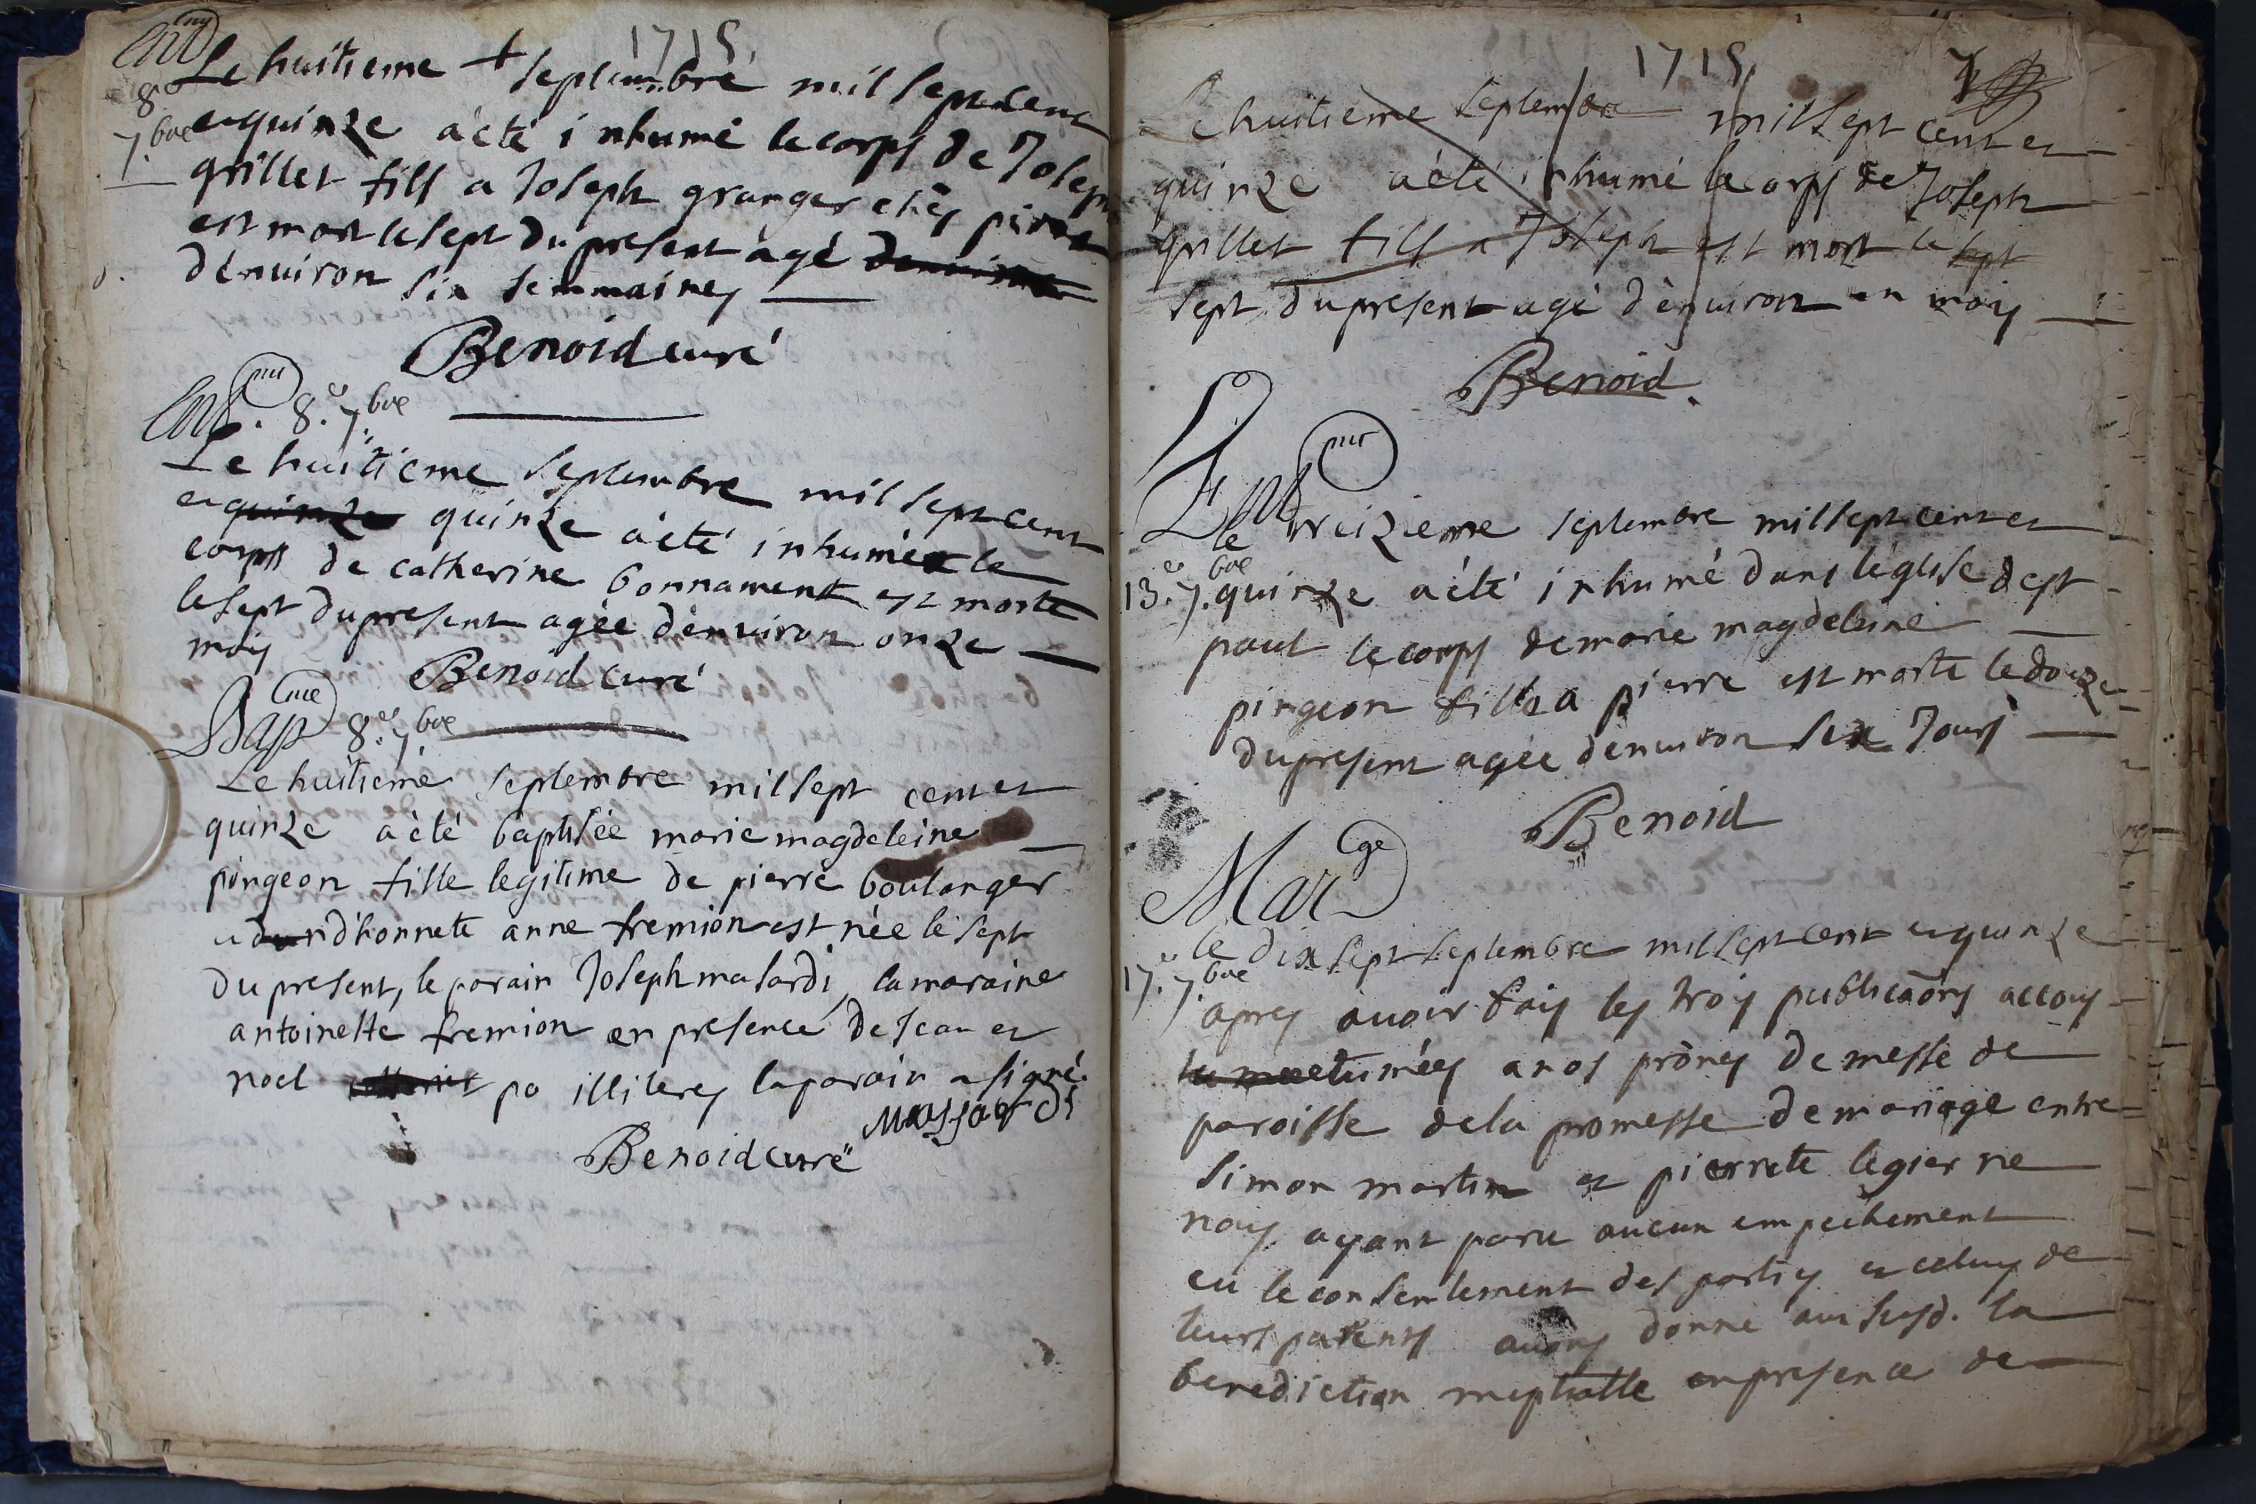 1715.
Ent
8e
7.bre
Le huitieme + septembre mil sept cent
et quinze a êté inhumé le corps de Joseph
grillet fils a Joseph granger chés pierre
est mort le sept du present agé denviron
d'enuiron six semmaines
Benoid curé
Ent. 8.e 7.bre
Le huitieme septembre mil sept cent
et quinze quinze a êté inhumée le
corps de catherine bonnament est morte
le sept du present agée d'enuiron onze
mois
Benoid curé
Bap 8.e 7bre
Le huitieme septembre mil sept cent et
quinze a êté baptisée marie magdeleine
pingeon fille legitime de pierre boulanger
et d'honnete anne fremion est née le sept
du present, le parain Joseph masardi, la maraine
antoinette fremion en presence de Jean et
noel po illiteres le parain a signé.
Massardi
Benoid curé
1715
7
Le huitieme septembre mil sept cent et
quinze a êté inhumé le corps de Joseph
grillet fils a Joseph est mort le sept
sept du present agé d'enuiron un mois
Benoid.
Ent
13.e 7.bre
le treizieme septembre mil sept cent et
quinze a êté inhumé dans l'église de st
paul le corps de marie magdeleine
pingeon fille a pierre est morte le douze
du present agée d'enuiron six Jours
Benoid
Mar ge
17.e 7.bre
le dix sept septembre mil sept cent et quinze
apres auoir fais les trois publicaôns accous
tumées a nos prônes de messe de
paroisse de la promesse de mariage entre
Simon martin et pierrete legier ne
nous ayant paru aucun empechement
eu le consentement des parties et celuy de
leurs parents auons donné aux susd. la
benediction nuptialle en presence de